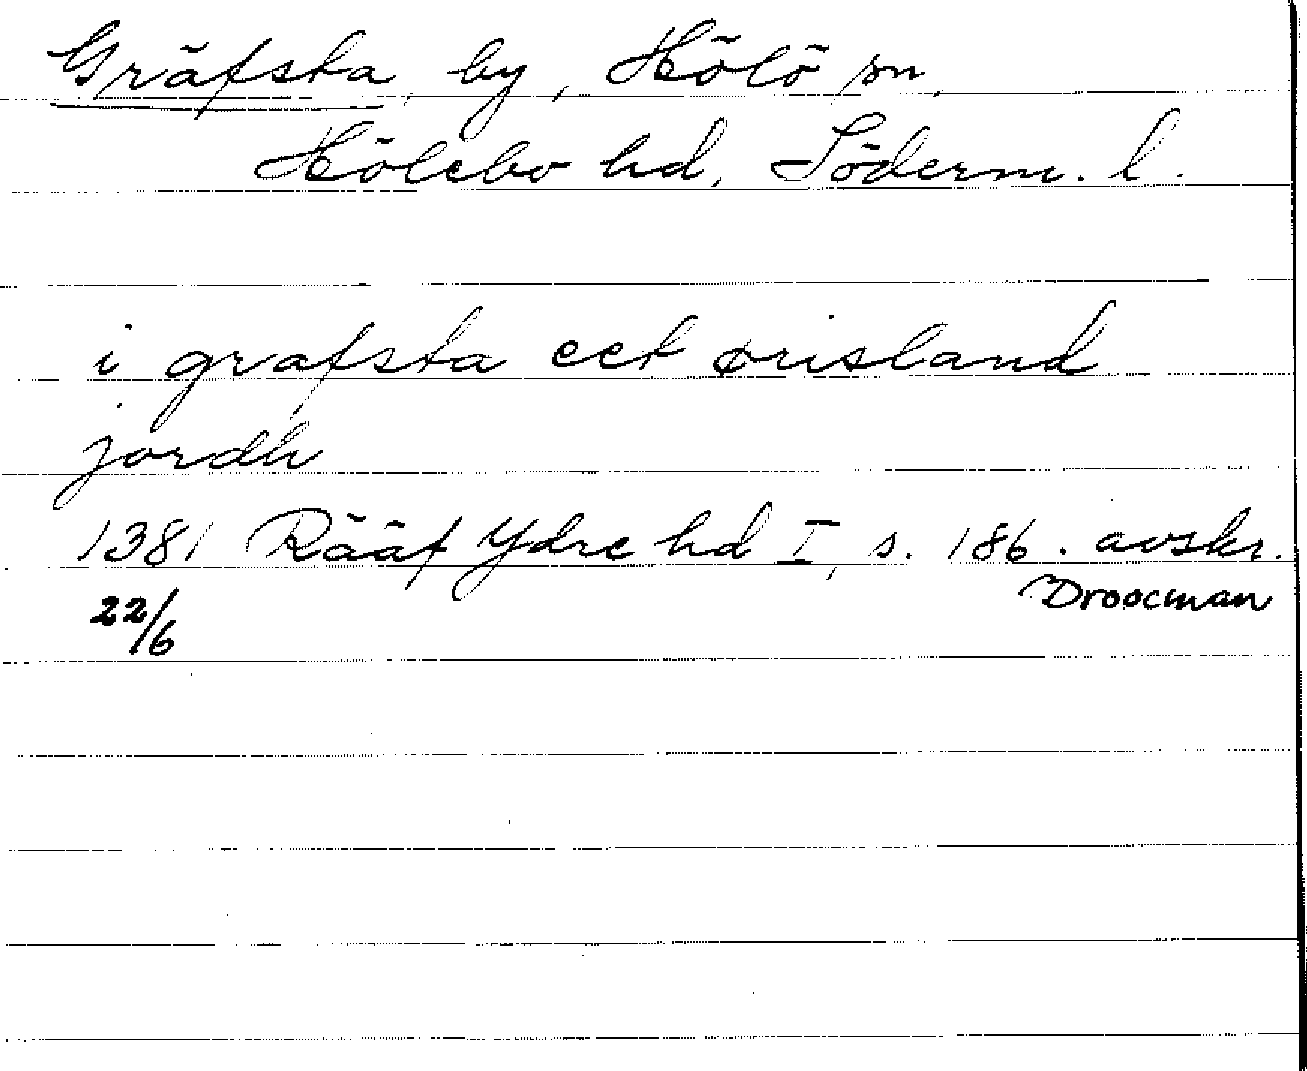 Gräfsta, by, Hölö sn,
Hölebo hd, Söderm. l.
i grafsta eet ørisland
jordh
1381 Rääf Ydre hd I, s. 186. avskr.
22/6 Droocman